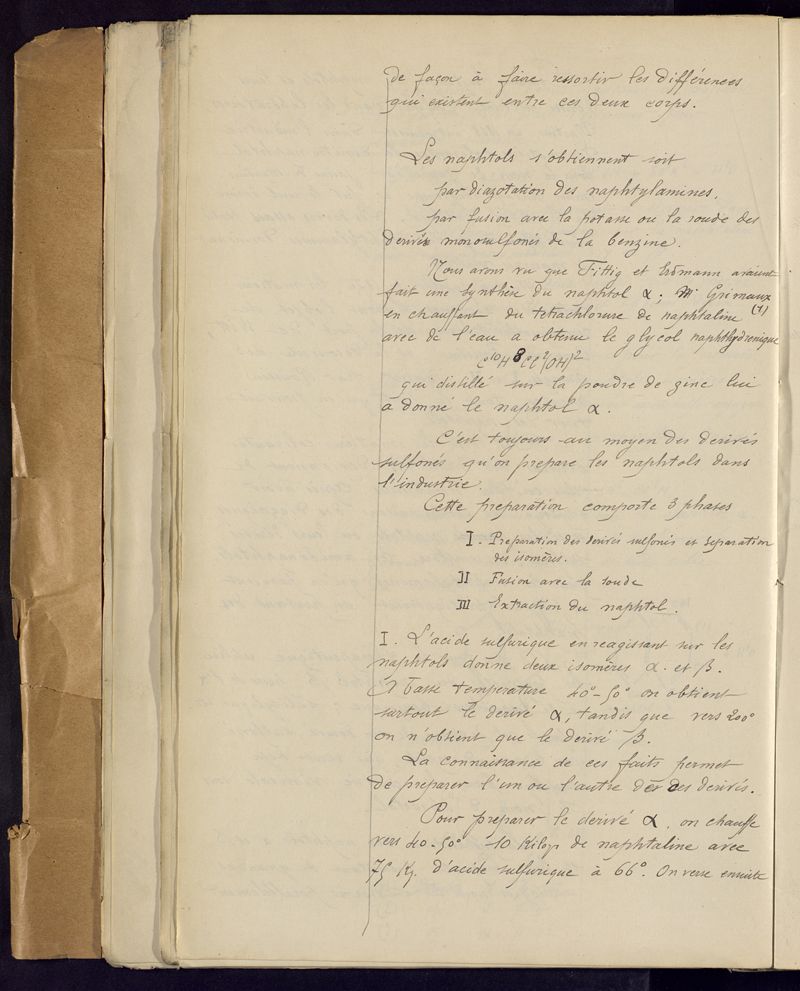 de façon à faire ressortir les différences
qui existent entre ces deux corps.
Les naphtols s'obtiennent soit
par diazotation des naphtylamines.
par fusion avec la potasse ou la soude des
derivés monosulfonés de la benzine.
Nous avons vu que Fittig et Erdmann avaient
fait une synthèse du naphtol α; Mr Grimaux
en chauffant du tetrachlorure de naphtaline (1)
avec de l'eau a obtenu le glycol naphthydrenique
C10H8Cl2(OH)2
qui distillé sur la poudre de zinc lui
a donné le naphtol α.
C'est toujours au moyen des derivés
sulfonés qu'on prepare les naphtols dans
l'industrie.
Cette preparation comporte 3 phases
I. Preparation des derivés sulfonés et separation
des isomères.
II Fusion avec la soude
III Extraction du naphtol.
I. L'acide sulfurique en reagissant sur les
naphtols donne deux isomères α et β.
A basse temperature 40°-50° on obtient
surtout le derivé α, tandis que vers 200°
on n'obtient que le derivé β.
La connaissance de ces faits permet
de preparer l'un ou l'autre des derivés.
Pour preparer le derivé α, on chauffe
vers 40-50° 10 Kilogr de naphtaline avec
75 Kg. d'acide sulfurique à 66°. On verse ensuite